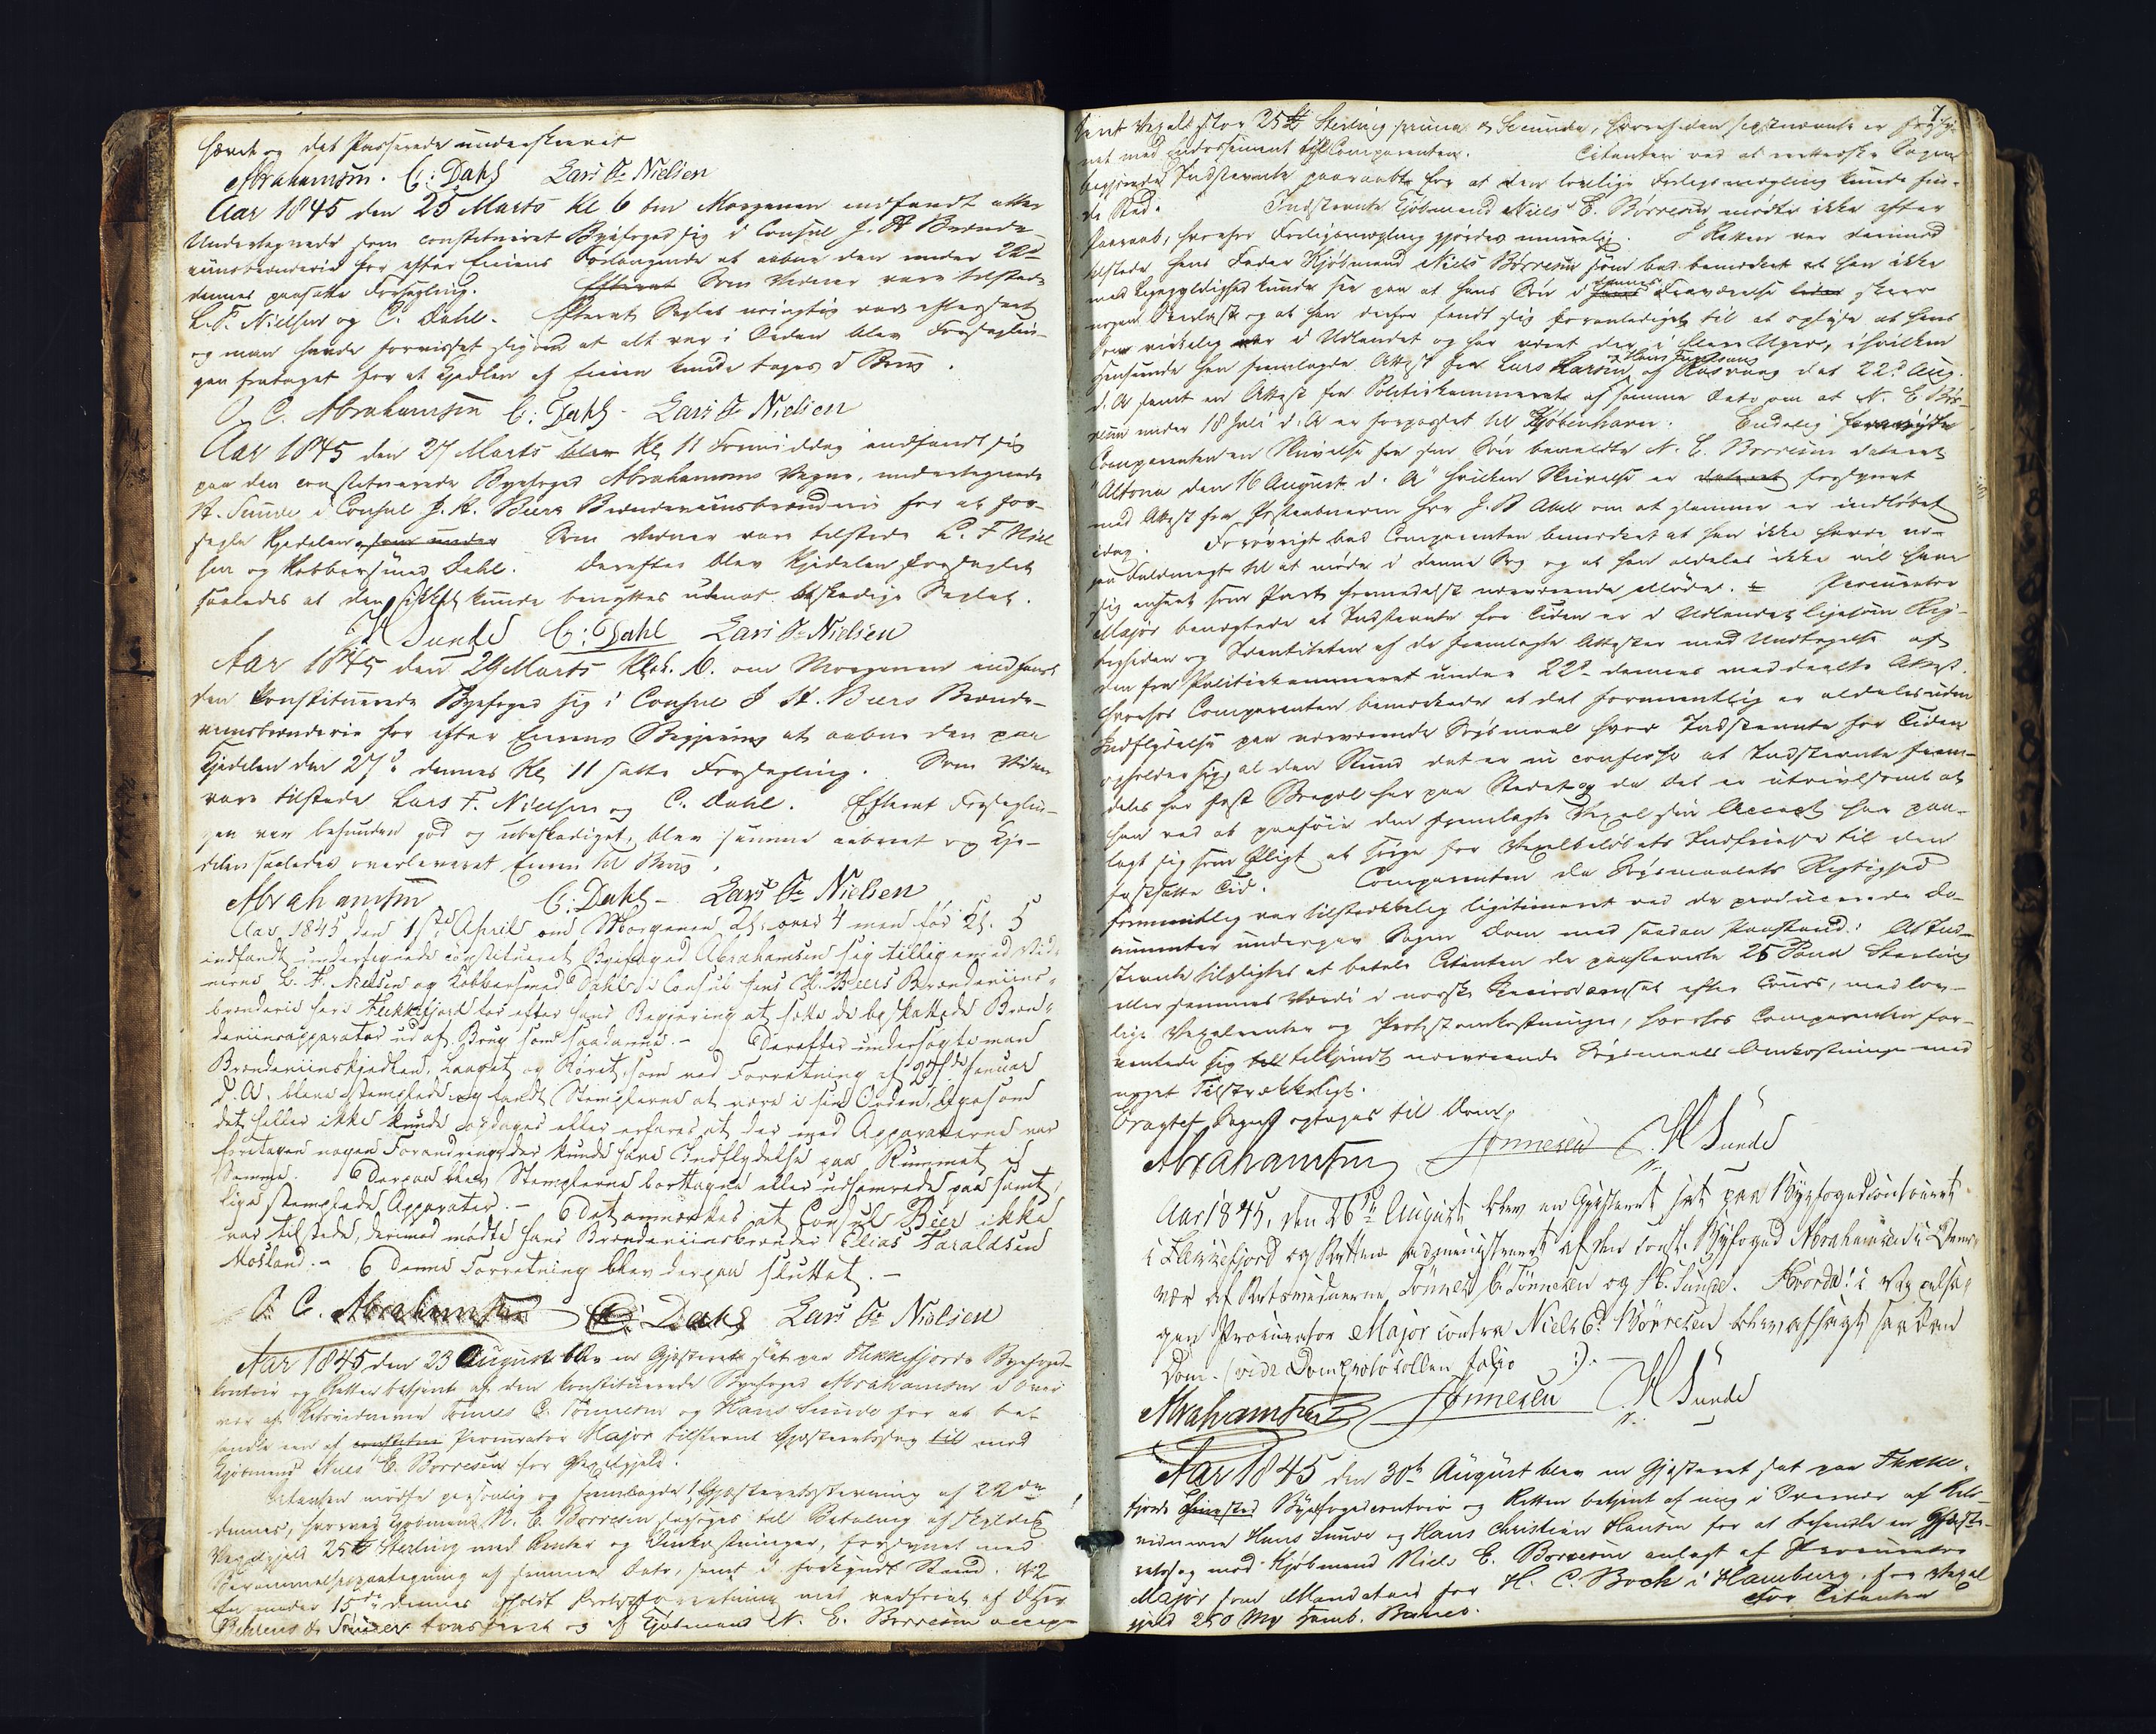 hævet og det Passerede underskrevet
Abrahamsen. C: Dahl Lars Fr Nielsen
Aar 1845 den 25 Marts Kl 6 om Morgenen indfandt atter
Undertegnede som constitueret Byefoged sig i Consul J. H Beers Brænde-
viinsbrænderie for efter Eierens Forlangende at aabne den under 22d
dennes paasatte Forsegling. Som Vidner vare tilstede
L. F. Nielsen og C. Dahl. Efterat Seglet var efterseet
og man havde forvisset sig om at alt var i Orden blev Forseglin-
gen frataget for at Kjedlen af Eieren kunde tages i Brug.
O. C. Abrahamsen C: Dahl - Lars Fr Nielsen
Aar 1845 den 27 Marts blev Kl 11 Formiddag indfandt sig
paa den constituerede Byefoged Abrahamsens Vegne, undertegnede
H. Sunde i Consul J. H. Beers Brændeviinsbrænderie for at for-
segle Kjedelen, som under Som Vidner vare tilstede L. F Niel
sen og Kobbersmed Dahl. Derefter blev Kjedelen forseglet
saaledes at den ikke kunde benyttes uden at beskadige Seglet.
H Sunde C: Dahl Lars Fr Nielsen
Aar 1845 den 29 Marts Klok. 6. om Morgenen indfandt
den Constituerede Byefoged sig i Consul J H. Beers Brænde-
viinsbrænderie for efter Eierens Begjæring at aabne den paa
Kjedelen den 27de dennes Kl 11 satte Forsegling. Som Vidner
vare tilstede Lars F. Nielsen og C. Dahl. Efterat Forseglin-
gen var befunden god og ubeskadiget, blev samme aabnet og Kje-
delen saaledes overleveret Eieren til Brug.
Abrahamsen C: Dahl - Lars Fr Nielsen
Aar 1845 den 1ste April om Morgenen Kl. over 4 men før Kl. 5
indfandt undertegnede constitueret Byefoged Abrahamsen sig tilligemed Vid-
nerne L. F. Nielsen og Kobbersmed Dahl i Consul Jens H. Beers Brændeviins-
brænderie her i Flekkefjord for efter hans Begjæring at sætte de beskattede Bræn-
deviinsapparater ud af Brug som saadanne. - Derefter undersøgte man
Brændeviinskjedlen, Laaget og Røret, som ved Forretning af Januar
d. A. bleve stemplede og fandt Stemplerne at være i sin Orden, ligesom
det heller ikke kunde opdages eller erfares at der med Apparaterne var
foretagen nogen Forandring der kunde have Indflydelse paa Rummet af
samme. Derpaa blev Stemplerne borttagne eller udhamrede paa samt-
lige stemplede Apparater. - Det anmærkes at Consul Beer ikke
var tilstede, derimod mødte hans Brændeviinsbrænder Elias Taraldsen
Mosland. - Denne Forretning blev derpaa sluttet. -
O. C. Abrahamsen C: Dahl Lars Fr Nielsen
Aar 1845 den 23 August blev en Gjæsteret sat paa Flekkefjords Byefoged-
contoir og Retten betjent af den Constituerede Byefoged Abrahamsen i Over-
vær af Retsvidnerne Tønnes C. Tønnesen og Hans Sunde for at be-
handle en af Procurator Major tilstevnt Gjæsteretssag til mod
Kjøbmand Niels E. Børresen for Vexelgjeld.
Citanten mødte personlig og fremlagde 1, Gjæsteretsstevning af 22de
dennes, hvorved Kjøbmand N. E. Børresen søges til Betaling af skyldig
Vexelgjeld 25 £ Sterling med Renter og Omkostninger, forsynet med
Berammelsespaategning af samme Dato, samt i forkyndt Stand. №2
En under 15de dennes afholdt Protestforretning med vedføiet af
Behrens & Sønner trasseret og af Kjøbmand N. E. Børresen accep-
7
teret Vexel stor 25 £ Sterling prima & Secunda, hvoraf den sidstnævnte er forsy-
net med Endossement til Comparenten. Citanten ved at sætte Sagen
begjærede Indstevnte paaraabt for at den lovlige Forligsmægling kunde fin-
de Sted. Indstevnte Kjøbmand Niels E. Børresen mødte ikke efter
Paaraab, hvorfor Forligsmægling gjordes umuelig. I Retten var derimod
tilstede hans Fader Kjøbmand Niels Børresen som bad bemærket at han ikke
med Ligegyldighed kunde see paa at hans Søn i hans Fraværelse skeer
nogen Overlast og at han derfor fandt sig foranlediget til at oplyse at hans
Søn virkelig er i Udlandet og har været der i flere Uger, i hvilken
Henseende han fremlagde Attest fra Lars Larsen & Hans Tønnesens af Rasvaag dat 22d Aug.
d. A samt en Attest fra Politiekammeret af samme Dato om at N. E Bør-
resen under 18 Juli d: A er forpasset til Kjøbenhavn. Endelig
Comparenten en Skrivelse fra sin Søn bemeldte N. E. Børresen dateret
"Altona den 16 August d. A" hvilken Skrivelse er forsynet
med Attest fra Postaabneren her J. P Abel om at samme er indløbet
idag. Forøvrigt bad Comparenten bemærket at han ikke havde no-
gen Fuldmagt til at møde i denne Sag og at han aldeles ikke vil have
sig anseet som Part formedelst nærværende Møde. Procurator
Major benægtede at Indstevnte for Tiden er i Udlandet ligesom Rig-
tigheden og Identiteten af de fremlagte Attester med Undtagelse af
den fra Politiekammeret under 22d dennes meddeelte Attest.
hvorhos Comparenten bemærkede at det formeentlig er aldeles uden
Indflydelse paa nærværende Søgsmaal hvor Indstevnte for Tiden
opholder sig, al den Stund det er in confesso at Indstevnte frem-
deles har fast Bopæl her paa Stedet og da det er utvivlsomt at
han ved at paaføie den fremlagte Vexel sin Accept har paa-
lagt sig som Pligt at sørge for Vexelbeløbets Indfrielse til den
fastsatte Tid. Comparenten da Søgsmaalets Rigtighed
formeentlig var tilstrækkelig legitimeret ved de producerede Do-
cumenter undergav Sagen Dom med saadan Paastand: At Ind-
stevnte tilpligtes at betale Citanten de paastevnte 25 Pund Sterling
eller sammes Værdi i norske efter Cours, med lov-
lige Vexelrenter og Protestomkostninger, hvorhos Comparenten for-
ventede sig tilkjendt nærværende Søgsmaals Omkostninger med
noget Tilstrækkeligt.
Eragtet Sagen optages til Dom.
Abrahamsen Tønnesen H Sunde
Aar 1845, den 26de August blev en Gjæsteret sat paa Byefogedcontoiret
i Flekkefjord og Retten administreret af den const. Byfoged Abrahamsen i Over-
vær af Retsvidnerne Tønnes C. Tønnesen og H. Sunde. Hvorda! i Vexelsa-
gen Prokurator Major contra Niels E. Børresen blev afsagt saadan
Dom. (vide Domprotocollen folio :). -
Abrahamsen Tønnesen H Sunde
Aar 1845 den 30te August blev en Gjæsteret sat paa Flekke-
fjords Byefogedcontoir og Retten betjent af mig i Overvær af Rets-
vidnerne Hans Sunde og Hans Christian Hansen for at behandle en Gjæste-
retssag mod Kjøbmand Niels E. Børresen anlagt af Procurator
Major som Mandatarius for H. C. Bock i Hamburg, for Vexel
gjeld 250 Mk Hamb. Banco. For Citanten